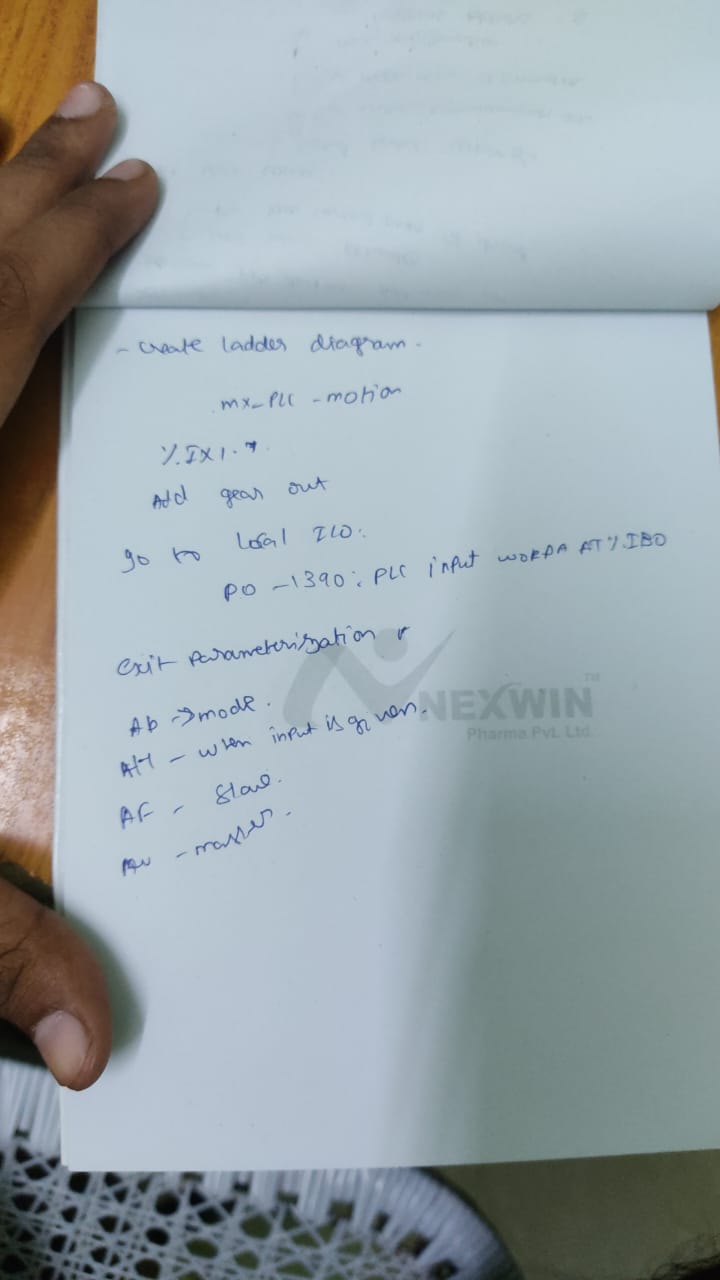 - Create ladder diagram.
mx-PLC - motion
%IX1.7.
Add gear out
go to Local ILO:
PO -1390: PLC input WORD AT%IB0
exit parameterization
Ab → mode.
AH - when input is given.
AF - Slave.
- master.
NEXWIN TM
Pharma Pvt. Ltd.